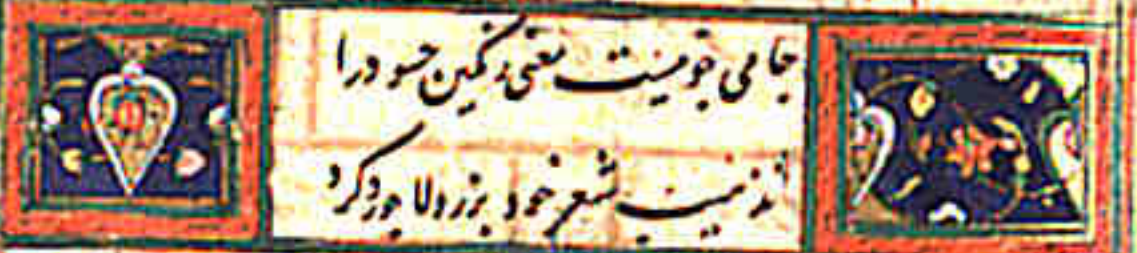 جامی چو نیست معنی رنگین حسود را
تذهیب شعر خود بزر و لاجورد کرد